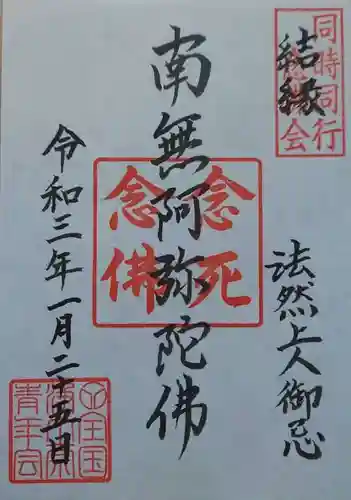 同時同行
結縁
法然上人御忌
南無阿弥陀佛
念死
念佛
令和三年一月二十五日
全国
青年会